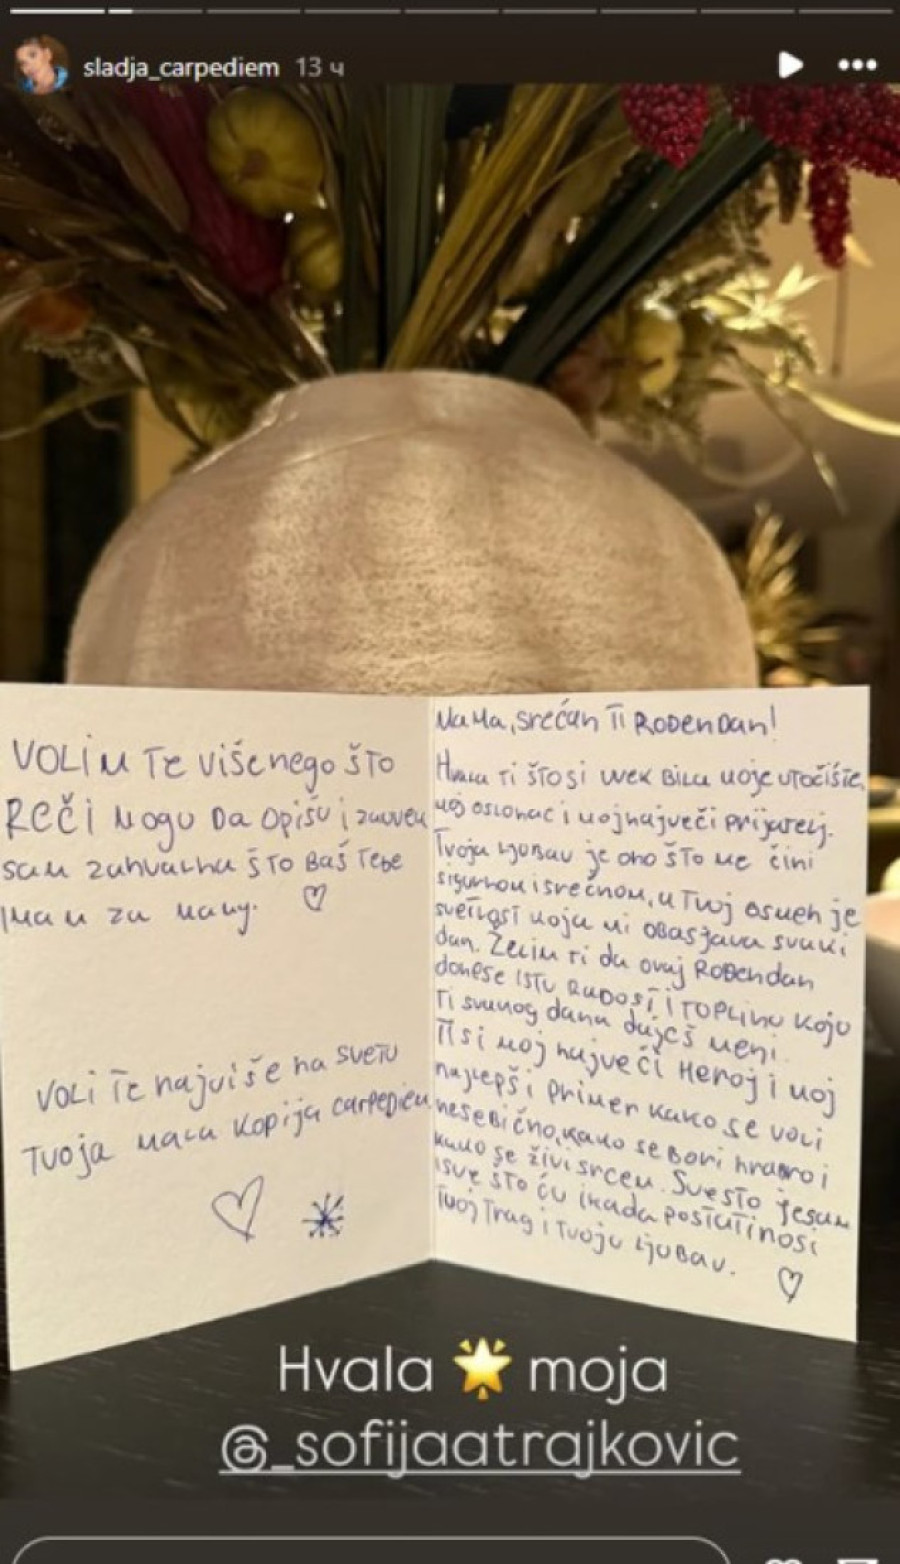 sladja_carpediem 13 ч
VOLIM Te više nego što
Reči mogu Da opišu i zauvek
sam zahvalna što Baš Tebe
imam za mamu. ♡
Voli Te najviše na svetu
Tvoja mala kopija carpediem
♡
Mama, srećan Ti Rođendan!
Hvala Ti što si uvek Bila moje utočište,
moj oslonac i moj najveći prijatelj.
Tvoja ljubav je ono što me čini
sigurnom i srećnom, a Tvoj osmeh je
svetlost koja mi obasjava svaki
dan. Želim Ti da ovaj Rođendan
donese istu Radost i Toplinu koju
Ti svakog dana daješ meni.
Ti si moj najveći Heroj i moj
najlepši primer kako se voli
nesebično, kako se bori hrabro i
kako se živi srcem. Sve što jesam
i sve što ću ikada postati nosi
Tvoj Trag i Tvoju ljubav. ♡
Hvala 🌟 moja
@_sofijaatrajkovic